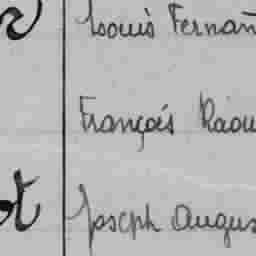 Louis Fernan
François Raou
Joseph Augus